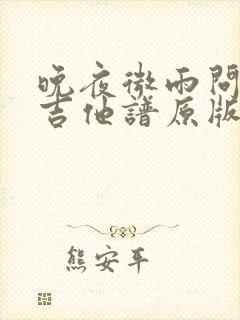 晚夜微雨問
吉他譜原版
熊安平